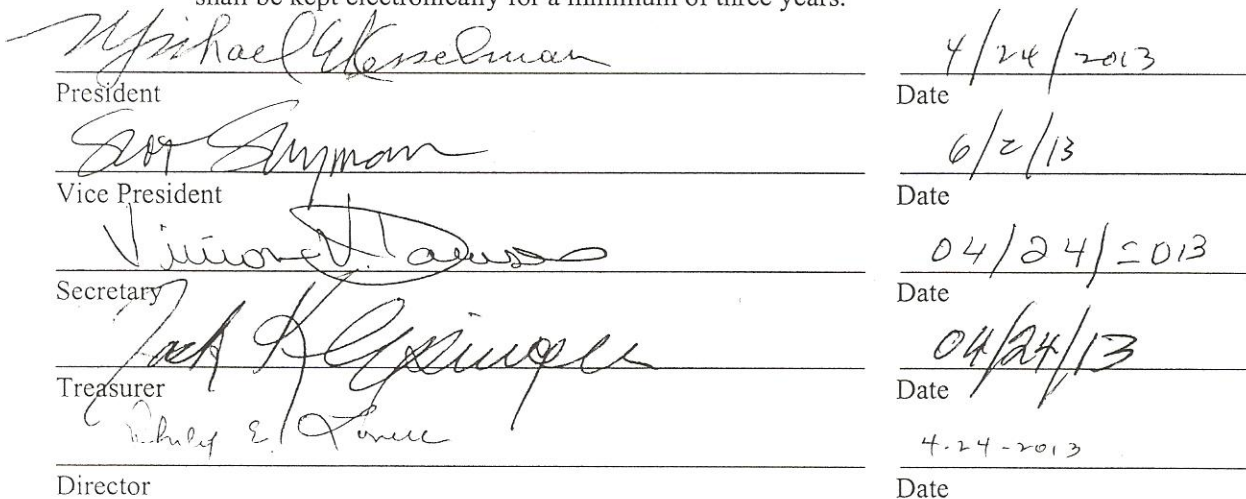 shall be kept electronically for a minimum of three years.
Michael Kesselman 4/24/2013
President Date
6/2/13
Vice President Date
04/24/2013
Secretary Date
Jack K 04/24/13
Treasurer Date
Philip E. 4-24-2013
Director Date